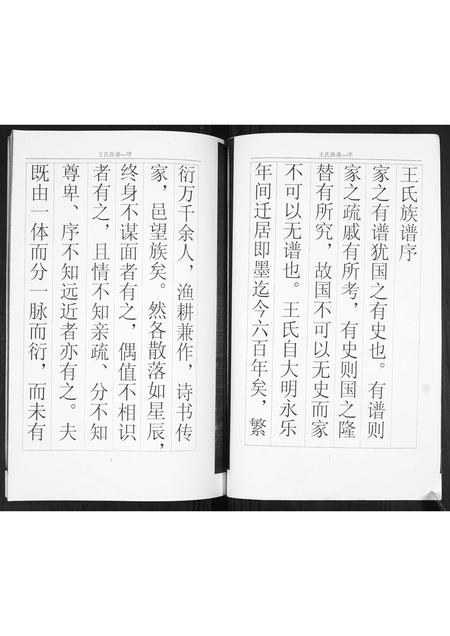 王氏族谱—序
王氏族谱序
家之有谱犹国之有史也。有谱则
家之疏戚有所考，有史则国之隆
替有所究，故国不可以无史而家
不可以无谱也。王氏自大明永乐
年间迁居即墨迄今六百年矣，繁
王氏族谱—序
衍万千余人，渔耕兼作，诗书传
家，邑望族矣。然各散落如星辰，
终身不谋面者有之，偶值不相识
者有之，且情不知亲疏、分不知
尊卑、序不知远近者亦有之。夫
既由一体而分一脉而衍，而未有